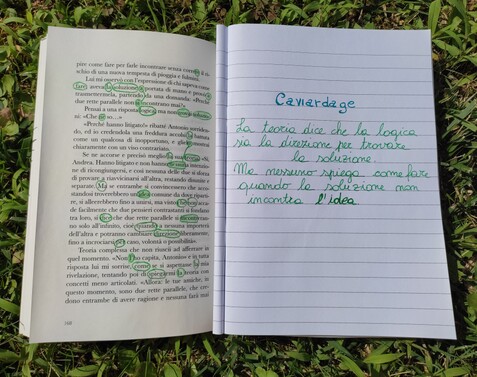 pire come fare per farle incontrare senza correre il ri-
schio di una nuova tempesta di pioggia e fulmini.
Lui mi osservò con l'espressione di chi sapeva come
fare, aveva la soluzione a portata di mano e provò a
trasmettermela, partendo da una domanda: «Perché
due rette parallele non si incontrano mai?».
Pensai a una risposta, ma non
ni: «Che ne so…»
«Perché hanno litigato!» ribatté Antonio sorriden-
do, ed io credendola una freddura accolsi la battuta
come un qualcosa di inopportuno, e glielo mostrai
chiaramente con un viso contrariato.
Se ne accorse e precisò meglio la sua
Andrea. Hanno litigato e non hanno
di ricongiungersi, e così nessuna delle due si sforza
di provare a riavvicinarsi all'altra, restando distinte e
separate. Ma se entrambe si convincessero che acco-
standosi troverebbero un'idea comune da dove riparti-
re, si allererebbero fino a unirsi, ma
ce facilmente che due pensieri contrastanti si fondano
tra loro, si dice che due rette parallele si incontrano
solo all'infinito, cioè quando a nessuna importerà
dell'altra e potranno cambiare direzione liberamente,
fino a incrociarsi per caso, volontà o possibilità».
Teoria complessa che non riuscii ad afferrare in
quel momento. «Non l'ho capita, Antonio» e in tutta
risposta lui mi sorrise, come se si aspettasse la mia
rivelazione, tentando poi di spiegarmi la teoria con
concetti meno articolati. «Allora: le tue amiche, in
questo momento, sono due rette parallele, che cre-
dono entrambe di avere ragione e nessuna farà mai
168
Caviardage
La teoria dice che la logica
sia la direzione per trovare
la soluzione.
Ma nessuno spiega come fare
quando la soluzione non
incontra l'idea